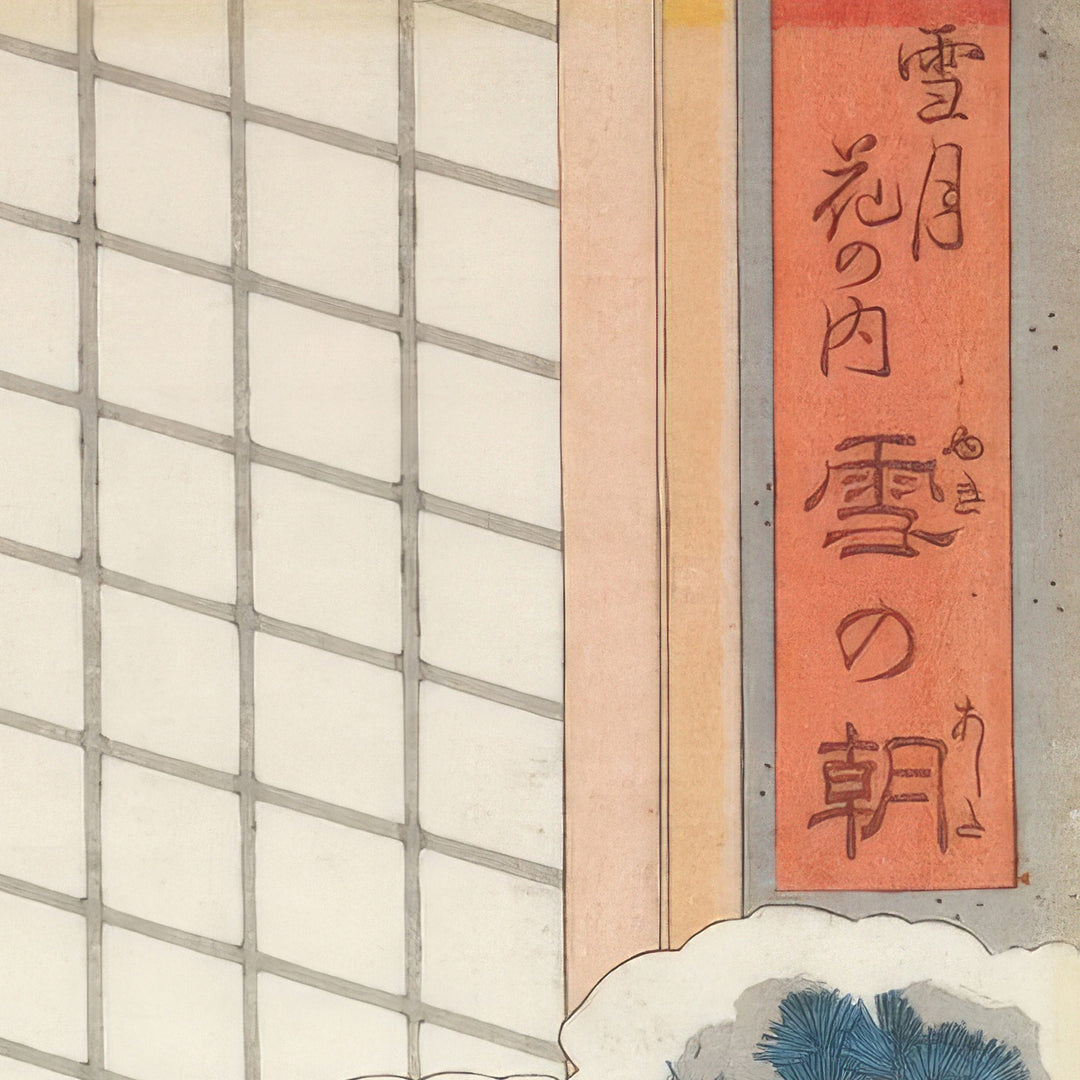 雪月
花の内
雪の朝
ゆき
あした